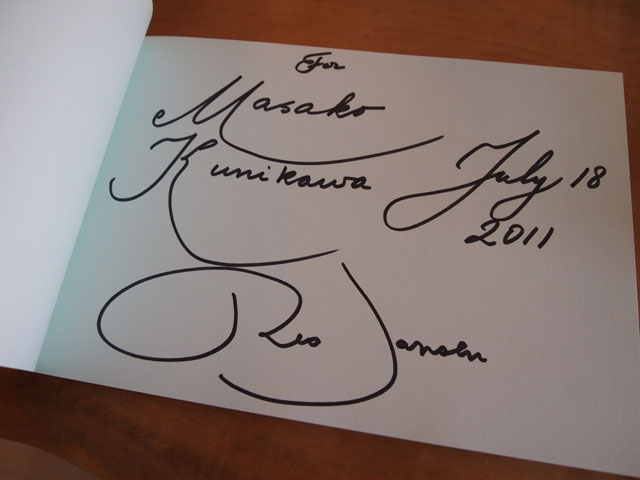 For
Masako
Kunikawa
July 18
2011
Theo Jansen